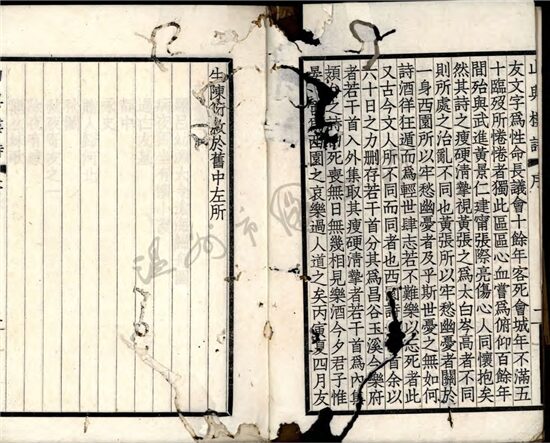 友文字爲性命長議會十餘年客死會城年不滿五
十臨歿所惓惓者獨此區區心血嘗爲俯仰百餘年
間殆與武進黃景仁建甯張際亮傷心人同懷抱矣
然其詩之瘦硬清摯視黃張之爲太白岑高者不同
則所處之治亂不同也黃張所以牢愁幽憂者關於
一身西園所以牢愁幽憂者及乎斯世憂之無如何
詩酒徉狂遁而爲輕世肆志若不難樂以忘死者此
又古今文人所不同而同者也西園詩
首余以
六十日之力刪存若干首分其爲昌谷玉溪今樂府
者若干首入外集取其瘦硬清摯者若干首爲內集
死喪無日無幾相見樂酒今夕君子惟
西園之哀樂過人道之矣丙
夏四月友
生陳衍敘於舊中左所
溫州市